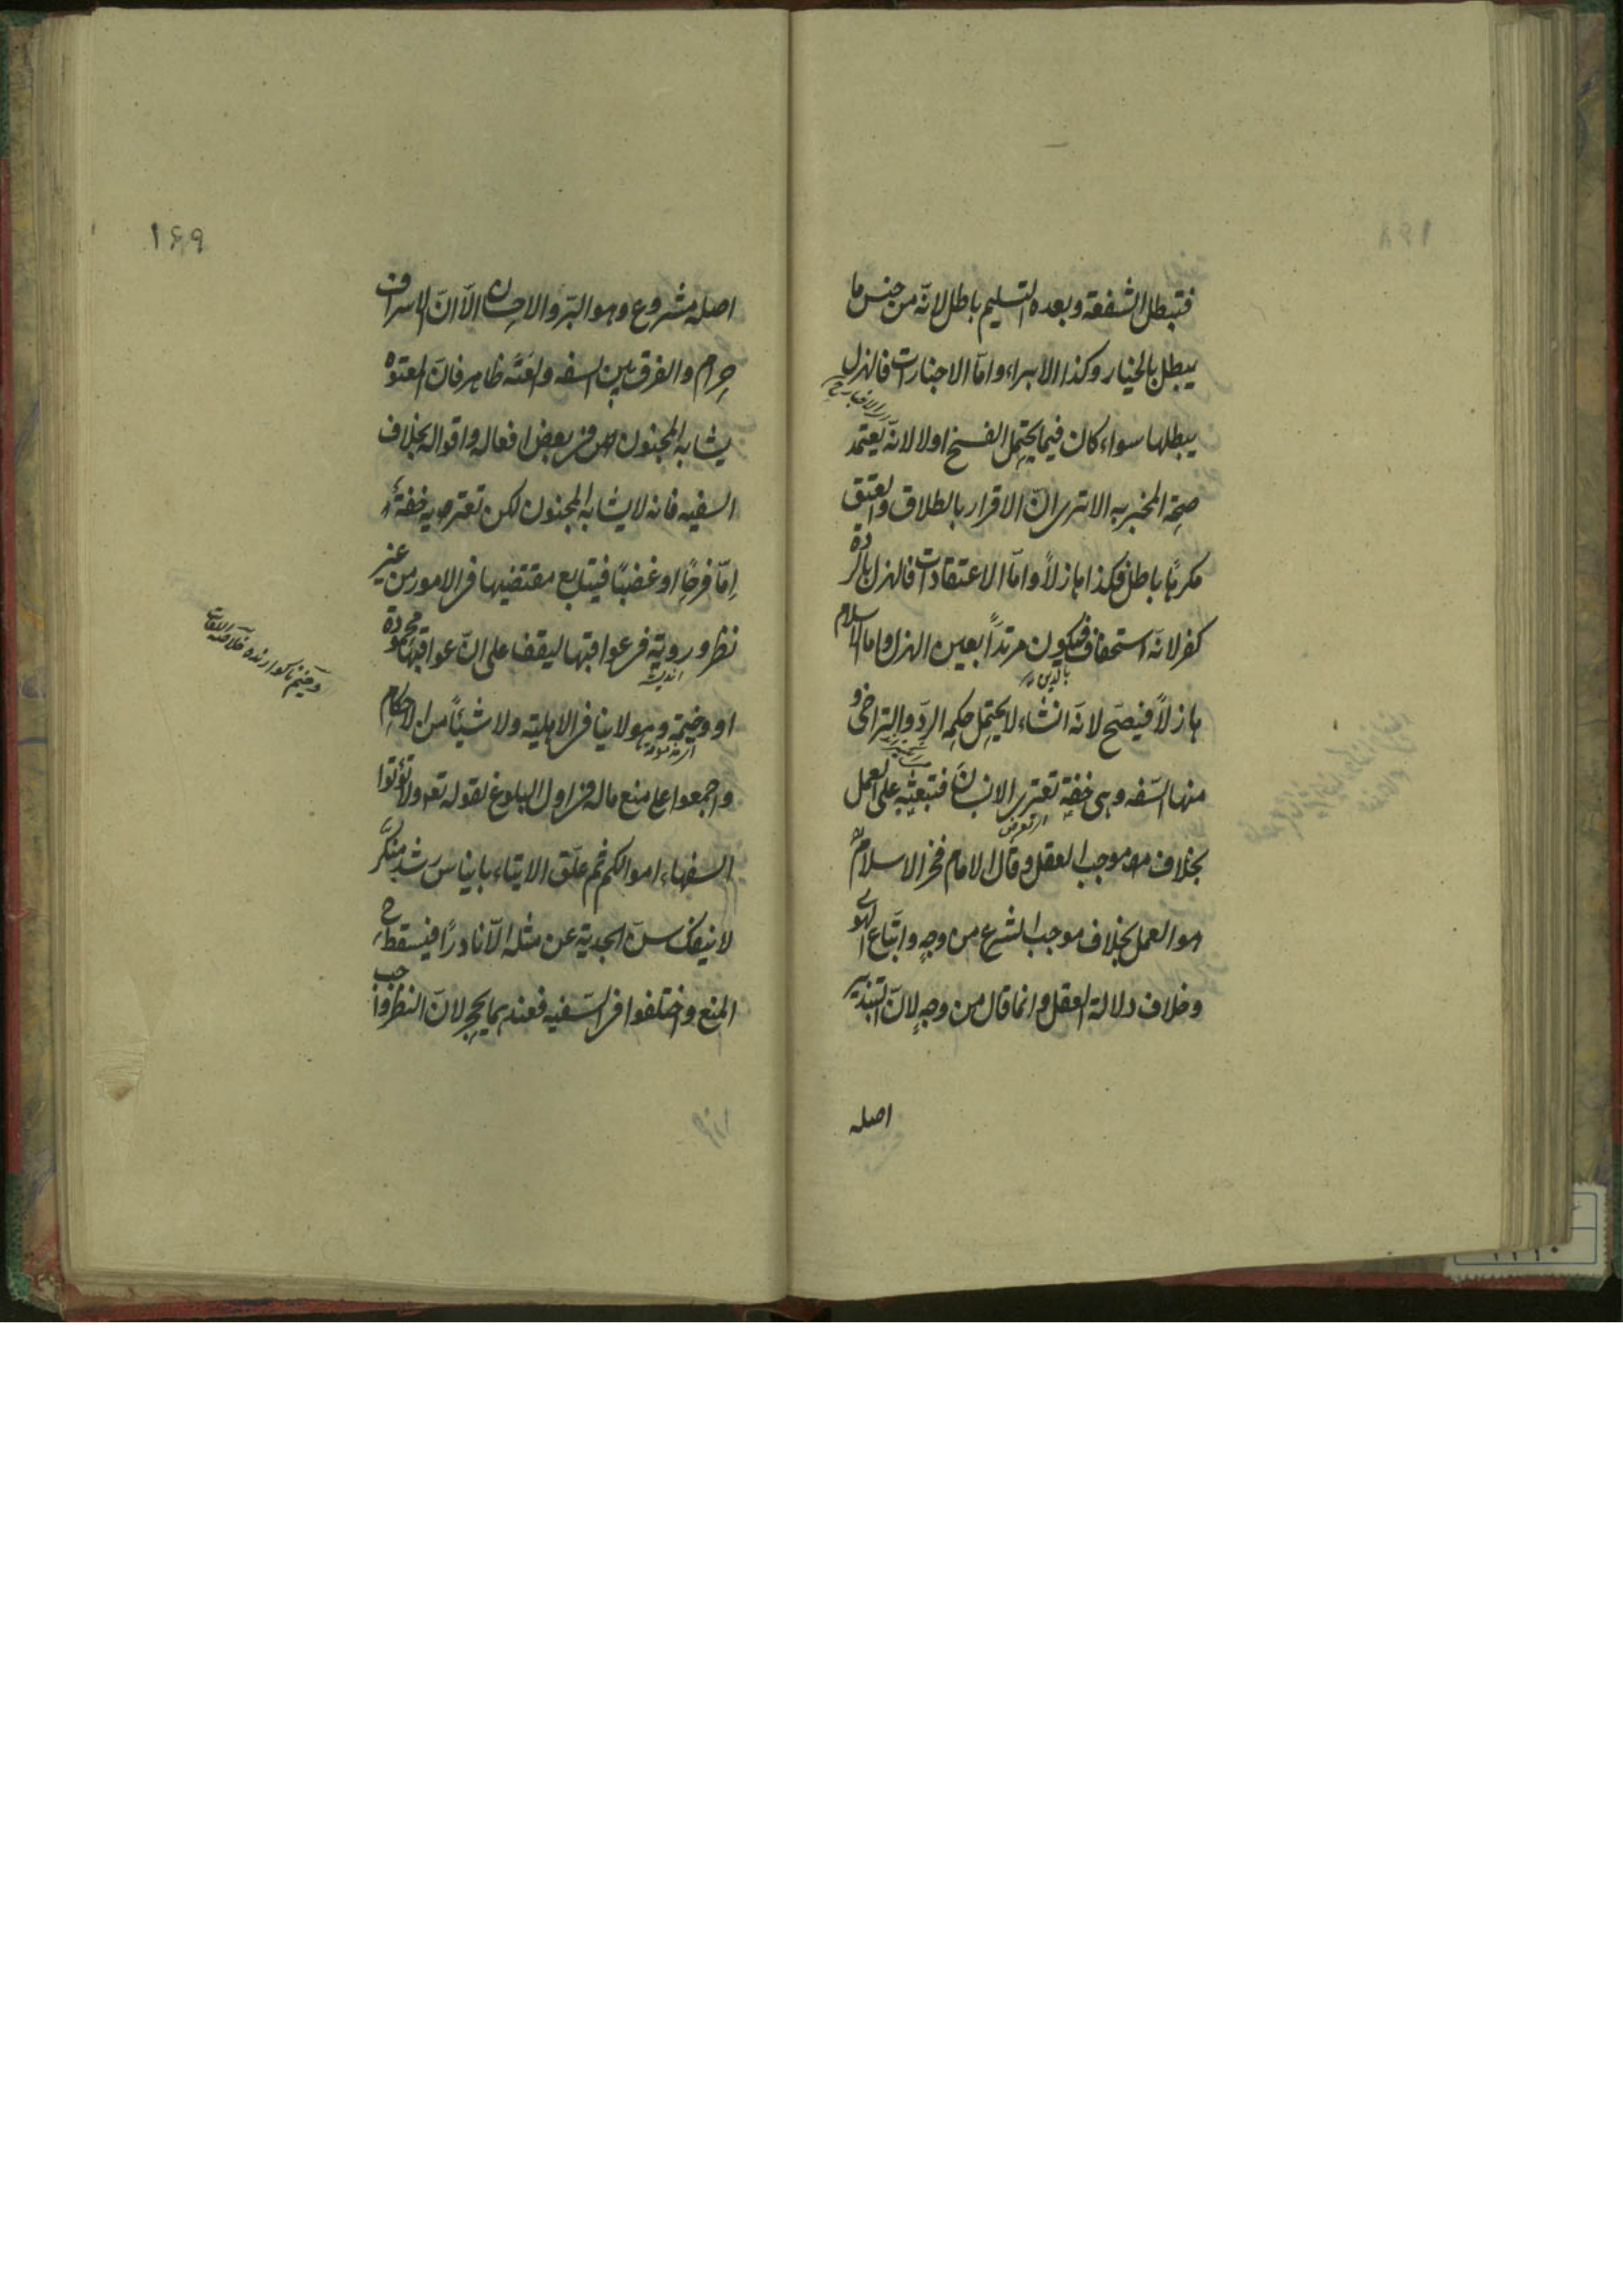 فتبطل الشفعة وبعده التسليم باطل لانّه من جنس ما
يبطل بالخيار وكذا الابراء وامّا الاخبارات فالهزل
يبطلها سواء كان فيما يحتمل الفسخ اولا لانّه يعتمد
صحّة المخبر به الا ترى انّ الاقرار بالطلاق والعتق
مكرهًا باطل فكذا هازلاً وامّا الاعتقادات فالهزل بالردة
كفر لانّه استخفاف فيكون مرتدًا بعين الهزل واما الاسلام
بالدين
هازلاً فيصح لانّه انشاء لا يحتمل حكمه الردّ والتراخى و
منها السّفه وهى خفة تعترى الانسان فتبعثه على العمل
بخلاف موجب العقل وقال الامام فخر الاسلام
هو العمل بخلاف موجب الشرع من وجهٍ واتّباع الهوى
وخلاف دلالة العقل وانما قال من وجهٍ لانّ التبذير
اصله
١٦٩
اصله مشروع وهو البرّ والاحسان الّا انّ الاسراف
حرام والفرق بين السفه والعته ظاهر فانّ المعتوه
يشابه المجنون فى بعض افعاله واقواله بخلاف
السفيه فانه لا يشابه المجنون لكن تعتريه خفة
امّا فرحًا او غضبًا فيتابع مقتضيها فى الامور من غير
نظر وروية فى عواقبها ليقف على انّ عواقبها محمودة
انديشه
او وخيمة وهو لا ينافى الاهلية ولا شيئًا من الاحكام
واجمعوا على منع ماله فى اول البلوغ لقوله تعه ولا تؤتوا
السفهاء اموالكم ثم علّق الايتاء بايناس رشد منكّر
لا ينفك سنّ الجدية عن مثله الّا نادرًا فيسقط ح
المنع واختلفوا فى السّفيه فعندهما يحجر لانّ النظر واجب